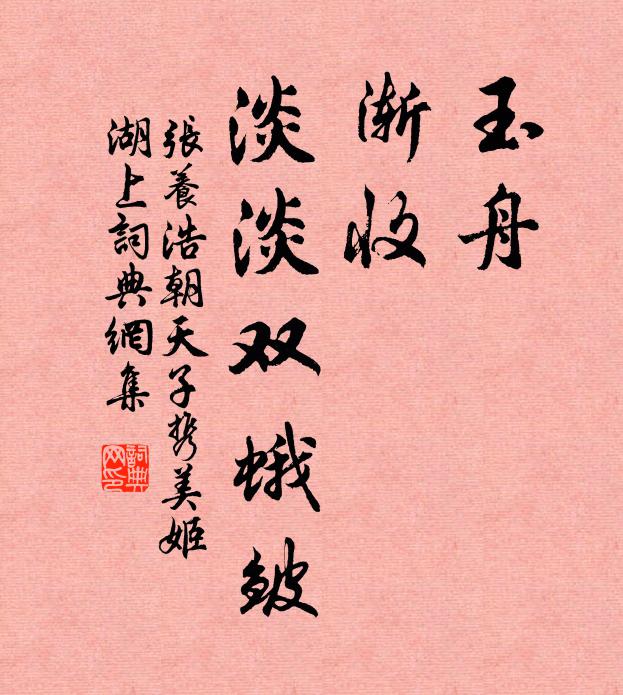 玉舟
渐收
淡淡双蛾皱
張養浩朝天子携美姬
湖上詞典網集
詞典
网印